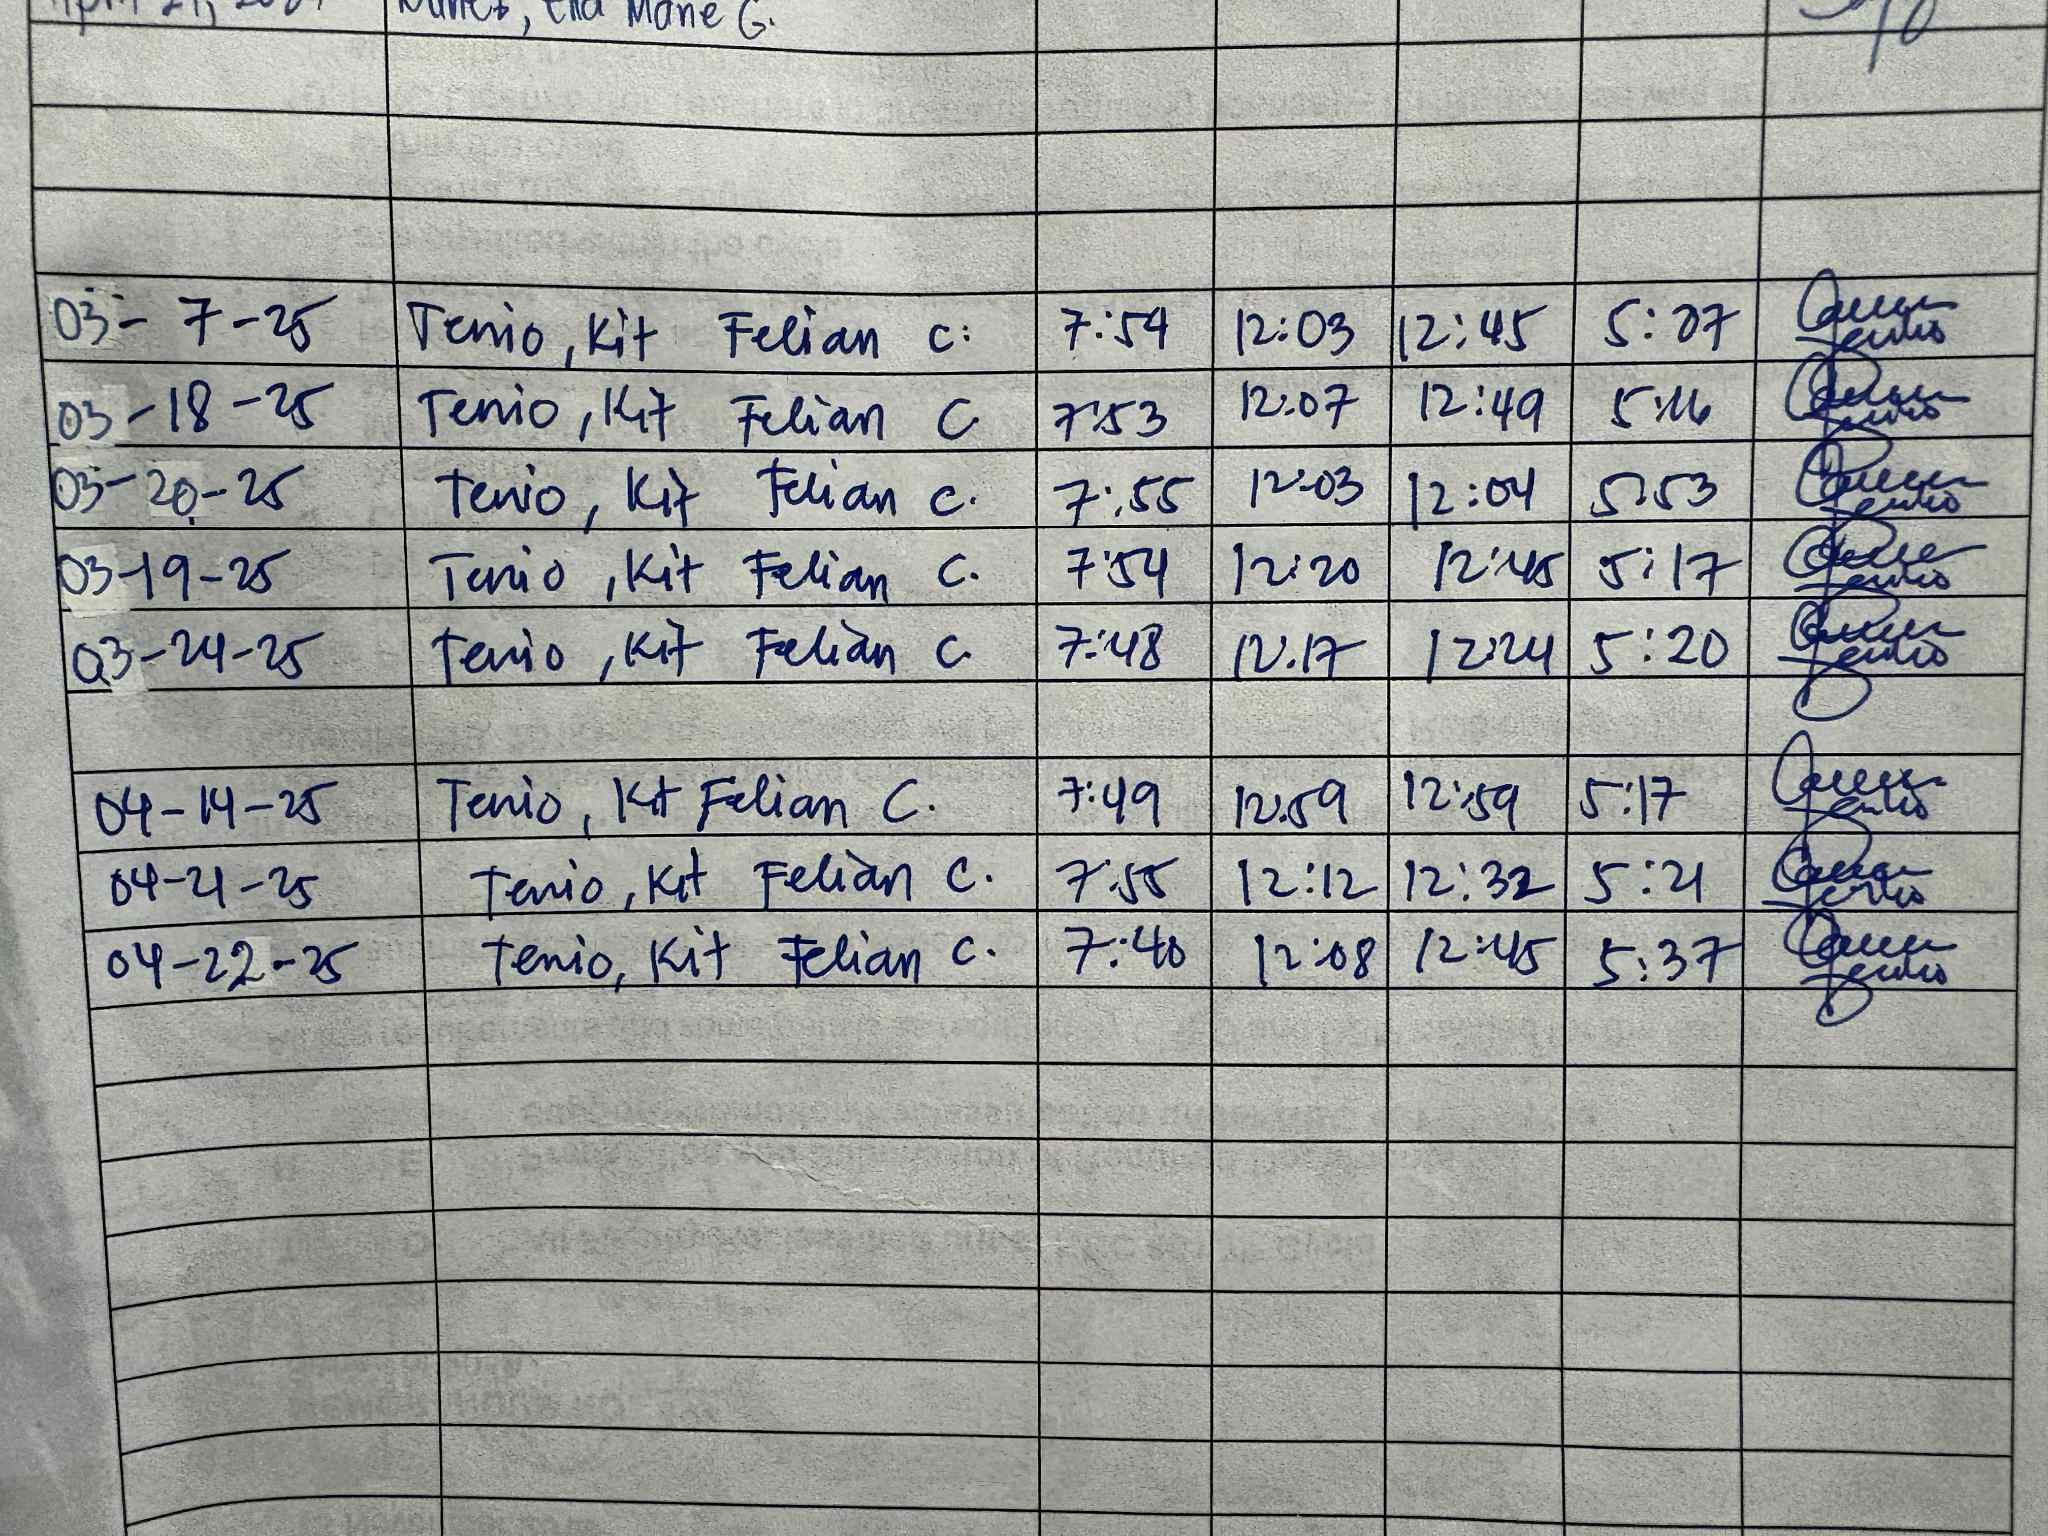 Marie G.
03-7-25 Tenio, Kit Felian C. 7:54 12:03 12:45 5:07
03-18-25 Tenio, Kit Felian C 7:53 12:07 12:49 5:16
03-20-25 Tenio, Kit Felian C. 7:55 12:03 12:04 5:53
03-19-25 Tenio, Kit Felian C. 7:54 12:20 12:45 5:17
03-24-25 Tenio, Kit Felian C. 7:48 12:17 12:24 5:20
04-14-25 Tenio, Kit Felian C. 7:49 12:59 12:59 5:17
04-21-25 Tenio, Kit Felian C. 7:55 12:12 12:32 5:21
04-22-25 Tenio, Kit Felian C. 7:40 12:08 12:45 5:37